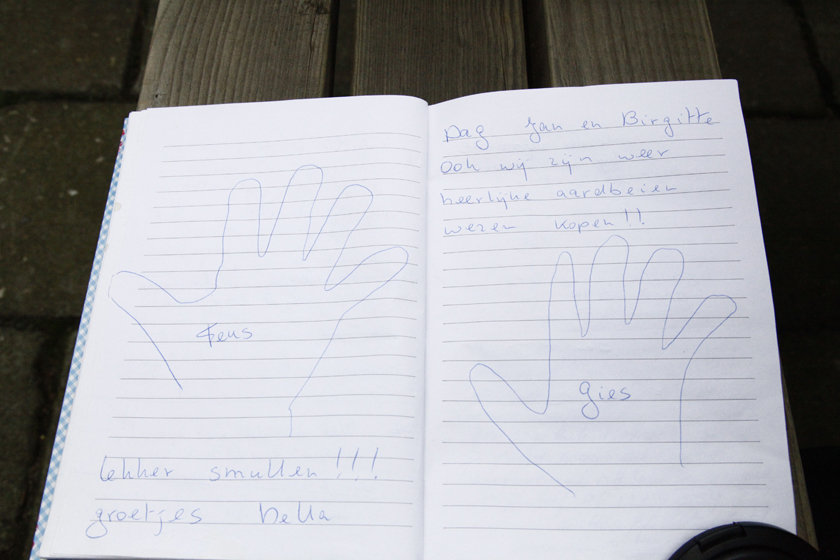 Feus
lekker smullen!!!
groetjes hella
Dag Jan en Birgitte
Ook wij zijn weer
heerlijke aardbeien
wezen kopen!!
gies